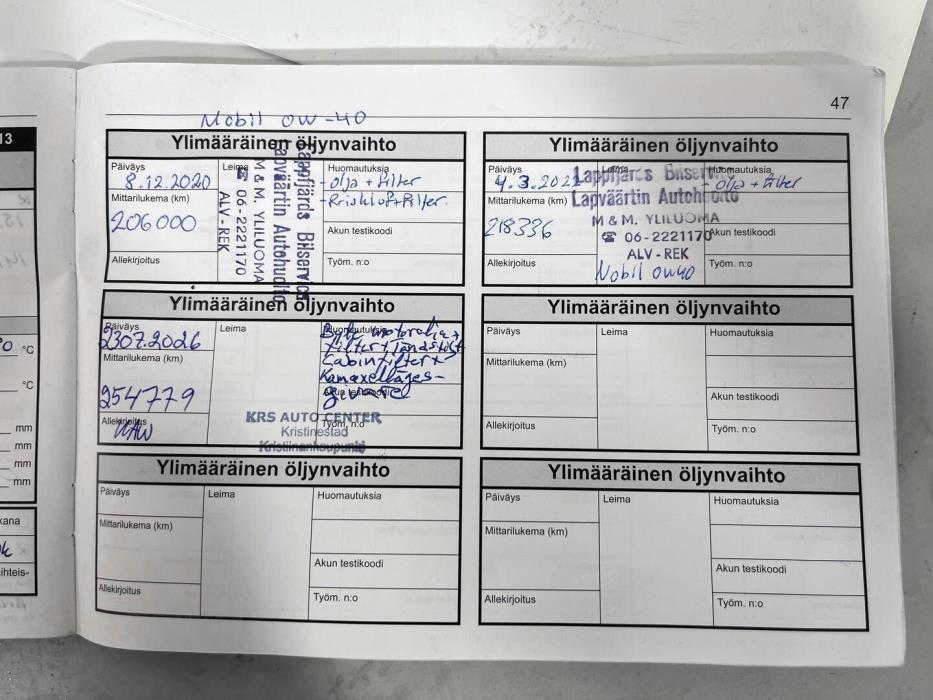 47
Mobil 0W-40
Ylimääräinen öljynvaihto
Päiväys
8.12.2020
Leima
Huomautuksia
- olja + Filter
- Friskluft Filter.
Mittarilukema (km)
206000
Akun testikoodi
Allekirjoitus
Työm. n:o
Lappfjärds Bilservice
Lapväärtin Autohuolto
M & M. YLILUOMA
☎ 06-2221170
ALV-REK
Ylimääräinen öljynvaihto
Päiväys
4.3.2022
Huomautuksia
- olja + Filter
Mittarilukema (km)
218336
Akun testikoodi
Allekirjoitus
Työm. n:o
Lappfjärds Bilservice
Lapväärtin Autohuolto
M & M. YLILUOMA
☎ 06-2221170
ALV-REK
Mobil 0W40
Ylimääräinen öljynvaihto
Päiväys
2307.2026
Leima
Huomautuksia
Byte motorolie +
filter + tändstift
Cabinfilter +
Kamaxelläges-
givare
Mittarilukema (km)
254779
Akun testikoodi
Allekirjoitus
Työm. n:o
KRS AUTO CENTER
Kristinestad
Kristiinankaupunki
Ylimääräinen öljynvaihto
Päiväys
Leima
Huomautuksia
Mittarilukema (km)
Akun testikoodi
Allekirjoitus
Työm. n:o
Ylimääräinen öljynvaihto
Päiväys
Leima
Huomautuksia
Mittarilukema (km)
Akun testikoodi
Allekirjoitus
Työm. n:o
Ylimääräinen öljynvaihto
Päiväys
Leima
Huomautuksia
Mittarilukema (km)
Akun testikoodi
Allekirjoitus
Työm. n:o
13
°C
°C
mm
mm
mm
mm
kana
ihteis-